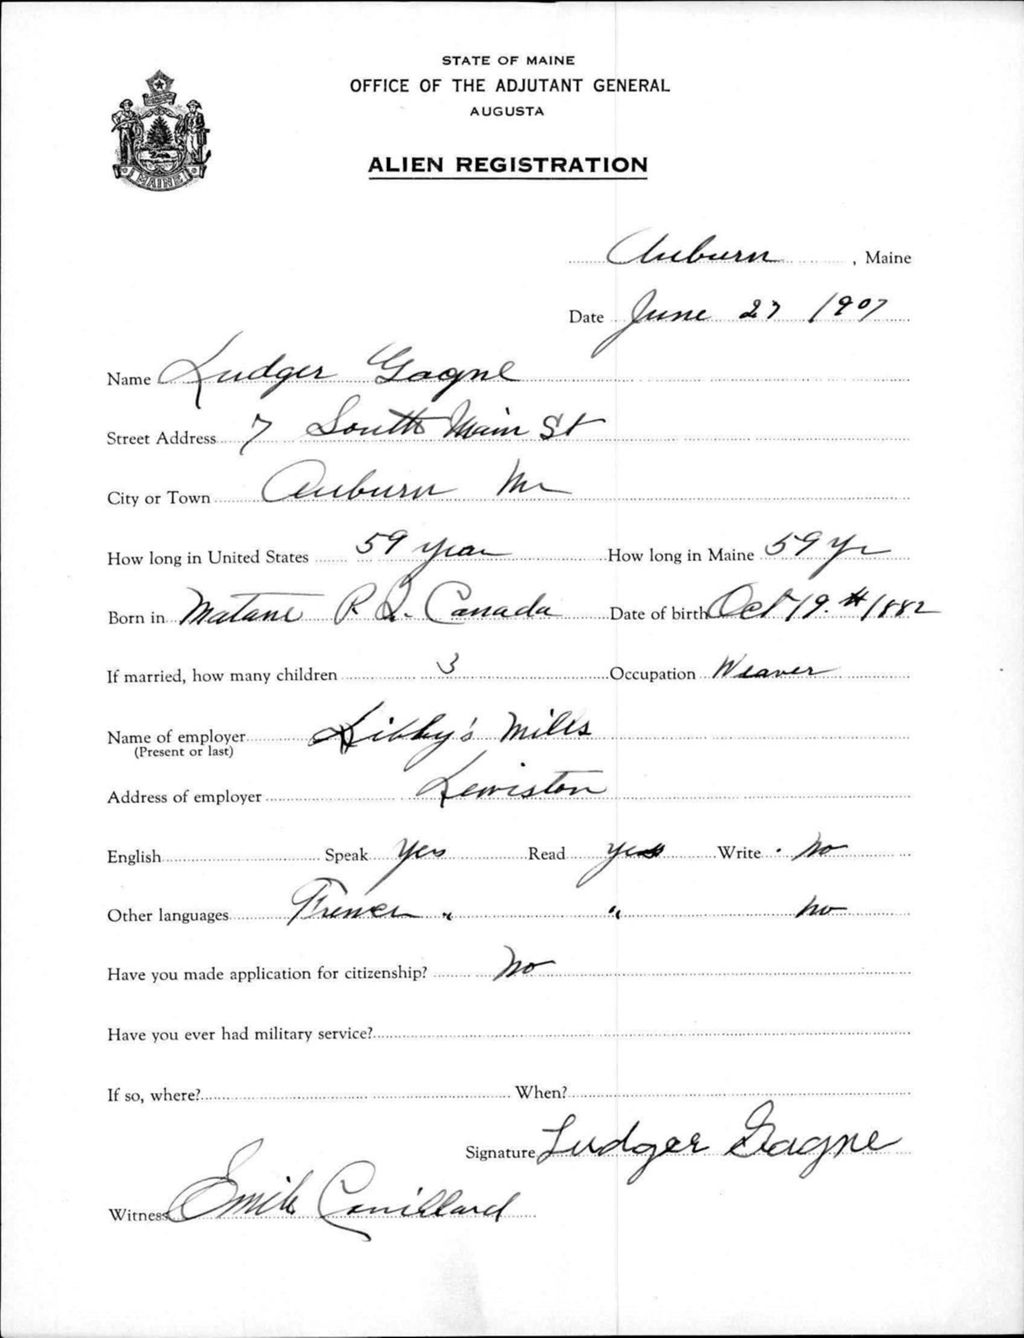 STATE OF MAINE
OFFICE OF THE ADJUTANT GENERAL
AUGUSTA
ALIEN REGISTRATION
MAINE
Auburn, Maine
Date June 27 1907
Name Ludger Gagne
Street Address 7 South Main St
City or Town Auburn Me
How long in United States 59 year How long in Maine 59 Yr
Born in Matane P. Q. Canada Date of birth Oct 19. # 1882
If married, how many children 3 Occupation Weaver
Name of employer Libby's Mills
(Present or last)
Address of employer Lewiston
English Speak Yes Read yes Write No
Other languages French " " no
Have you made application for citizenship? No
Have you ever had military service?
If so, where? When?
Signature Ludger Gagne
Witness Emile Couillard